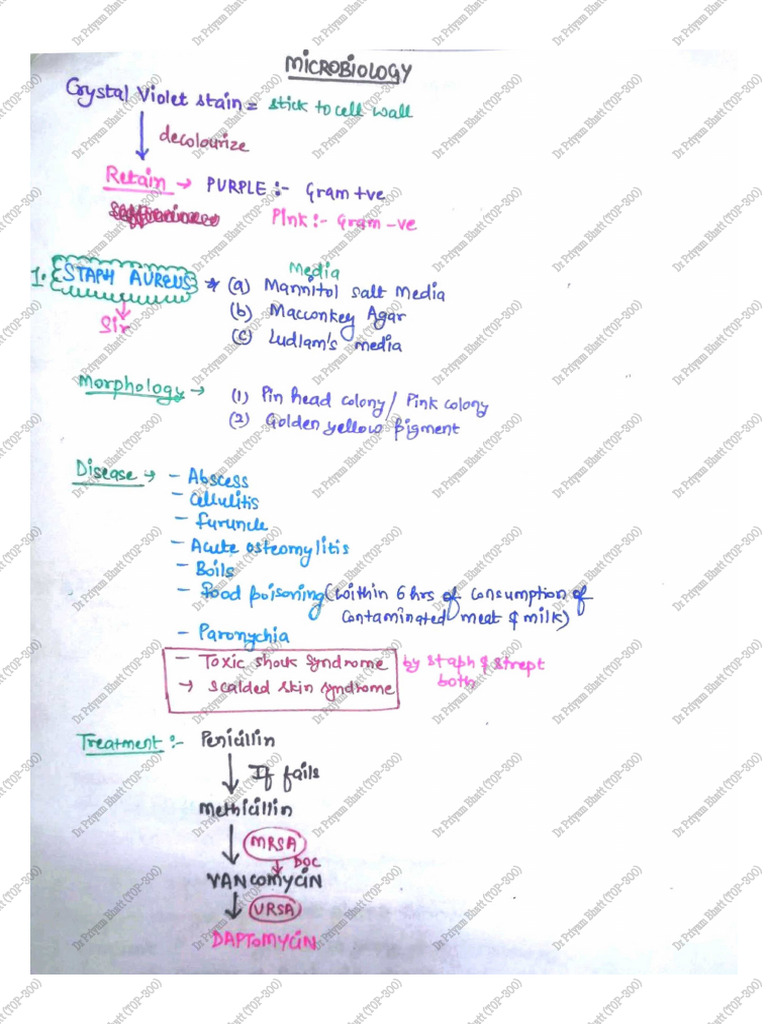 MICROBIOLOGY
Crystal Violet stain = stick to cell wall
decolourize
Retain → PURPLE :- Gram +ve
Saffranine Pink :- Gram -ve
1. STAPH AUREUS * Media
(a) Mannitol salt Media
(b) Macconkey Agar
(c) Ludlam's media
Sir
Morphology → (1) Pin head colony / Pink colony
(2) Golden yellow pigment
Disease → - Abscess
- Cellulitis
- furuncle
- Acute osteomylitis
- Boils
- food poisoning (within 6 hrs of consumption of
contaminated meat & milk)
- Paronychia
- Toxic shouk syndrome by staph & strept
→ scalded skin syndrome both
Treatment :- Penicillin
↓ If fails
Methicillin
↓ MRSA
↓ DOC
VANCOMYCIN
↓ VRSA
DAPTOMYCIN
Dr Priyam Bhatt (TOP-300)